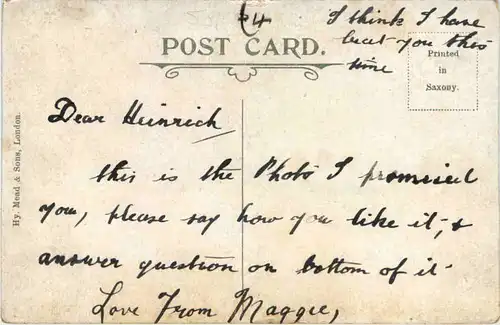 64
I think I have
beat you this
time
POST CARD.
Printed
in
Saxony.
Hy. Mead & Sons, London.
Dear Heinrich
this is the Photo I promised
you, please say how you like it, &
answer question on bottom of it
Love From Maggie,